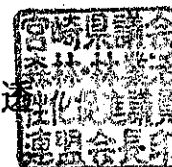 宮崎県議会
森林林業活
性化促進議員
連盟会長印
透